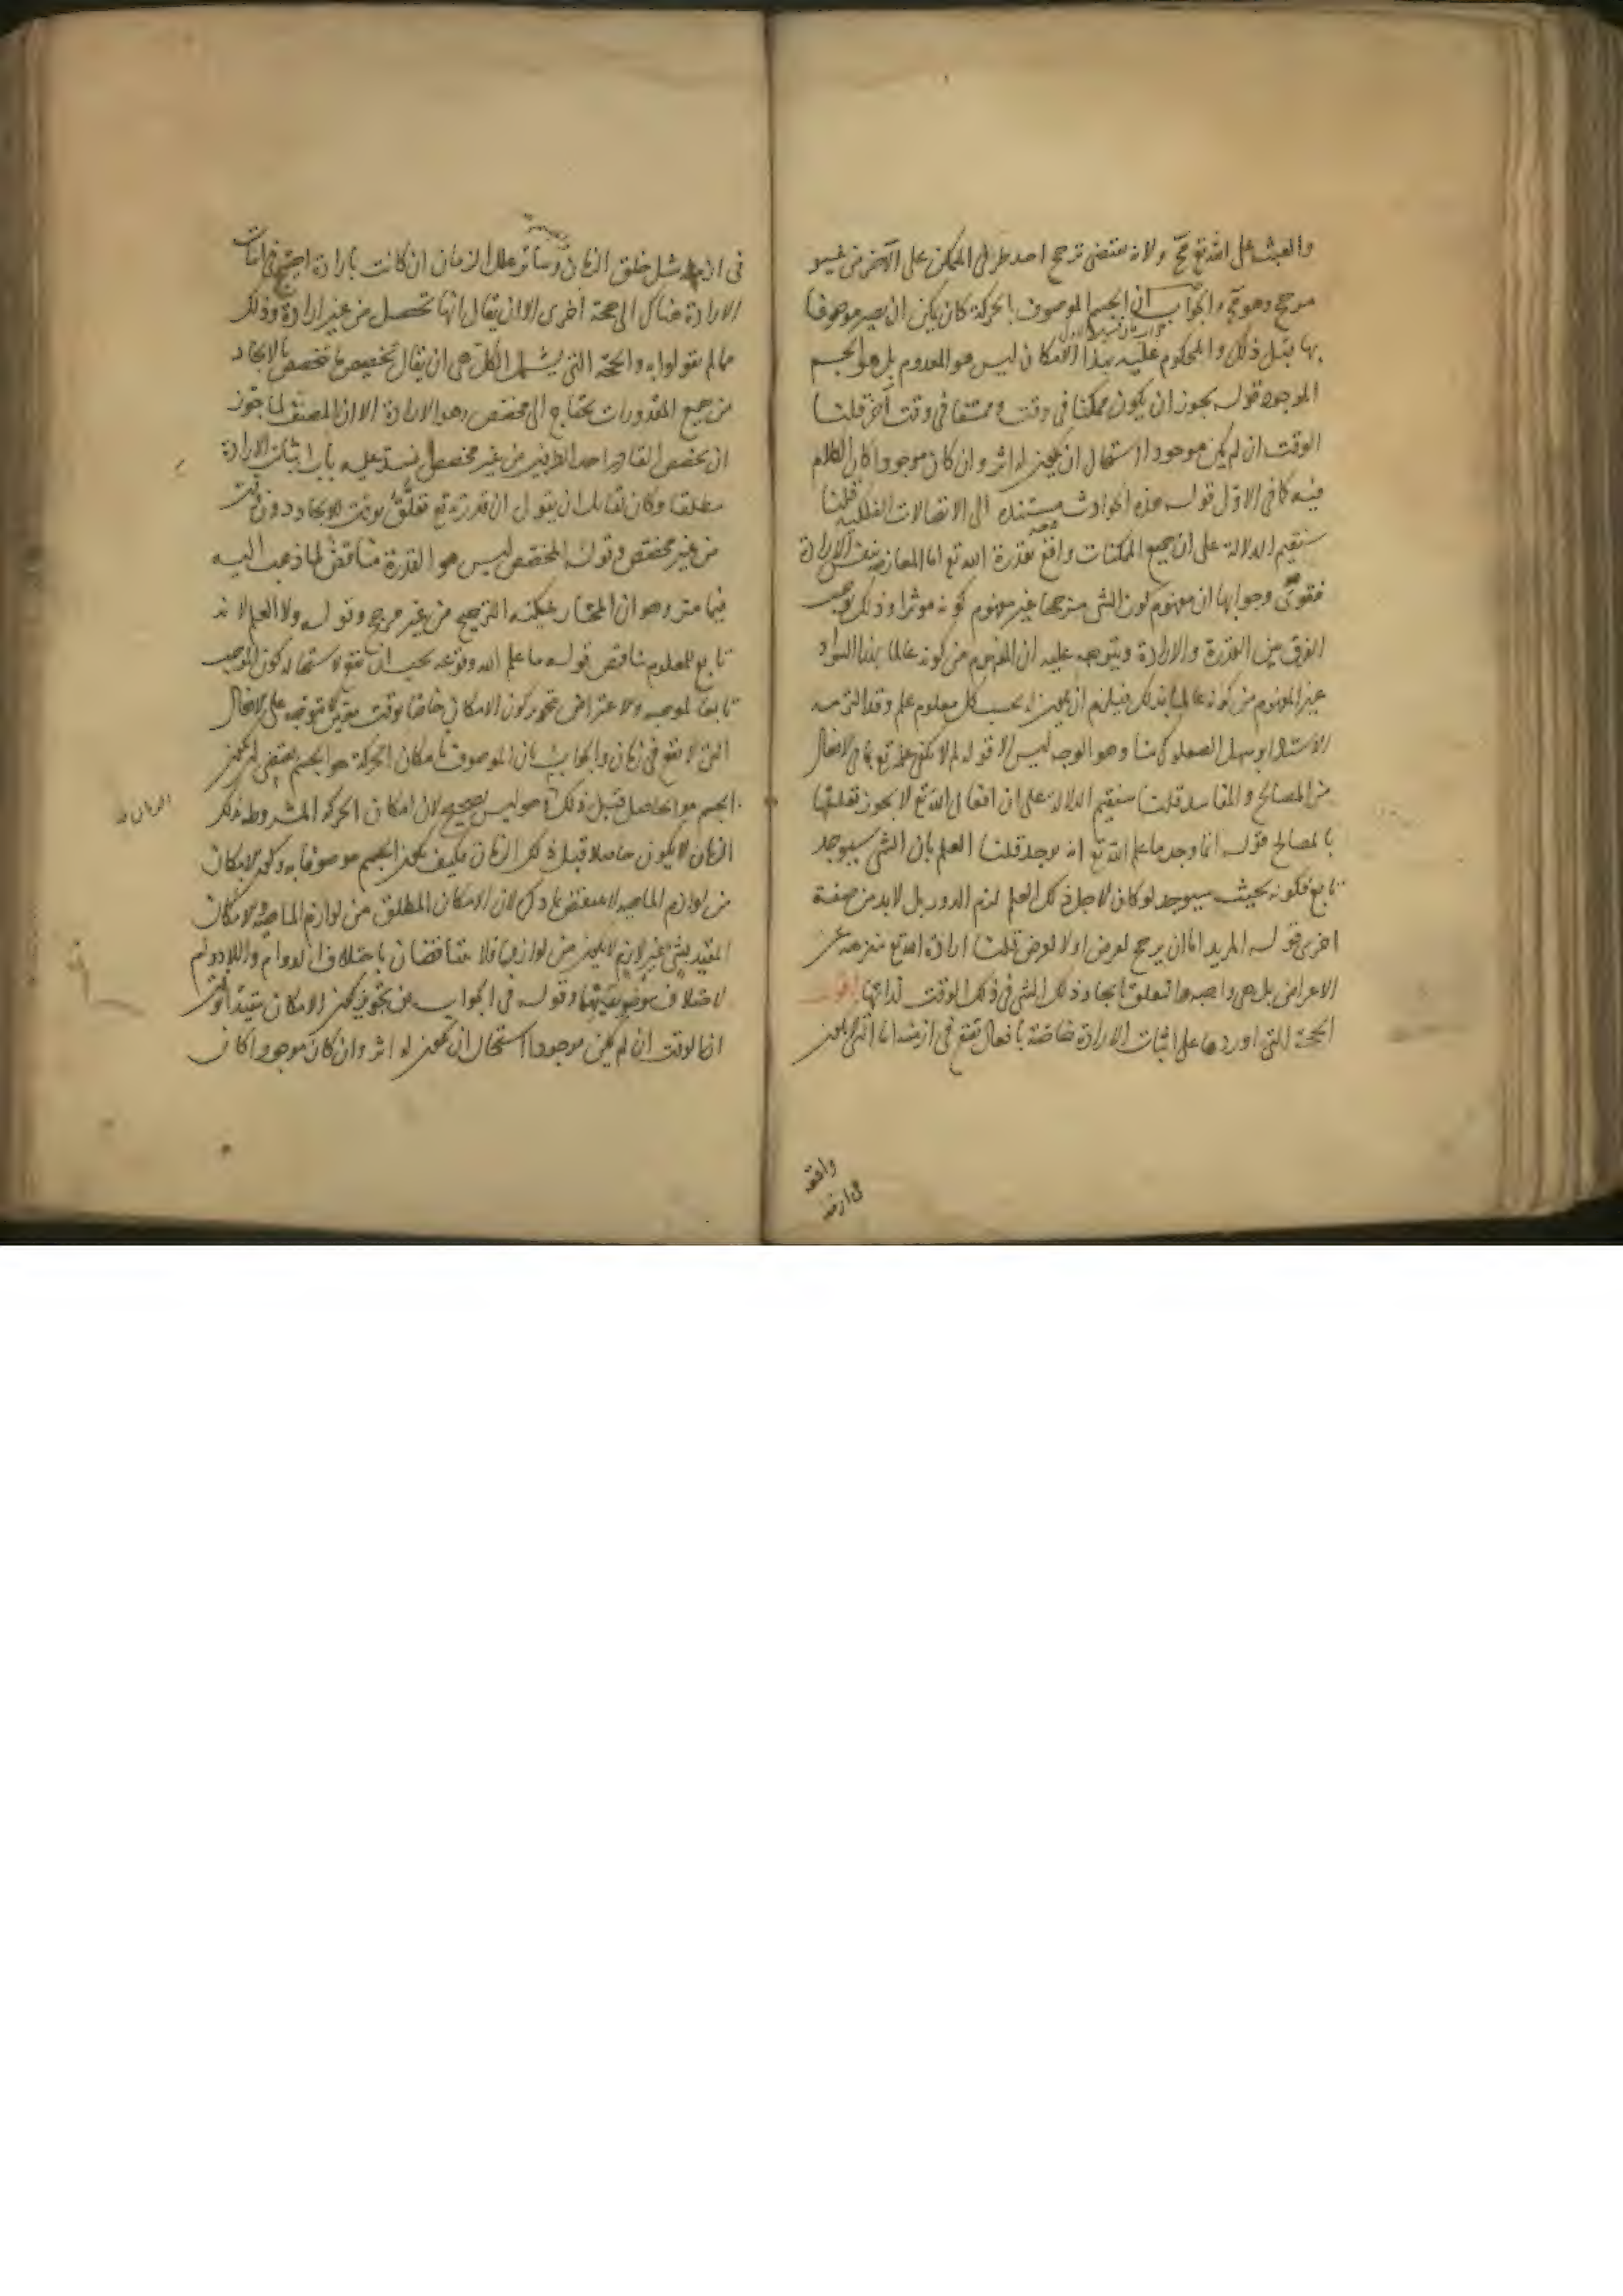 والعبث على الله تع مح ولانه يقتضى ترجح احد طرفى الممكن على الآخر من غير
مرجح وهو مح والجواب ان الجسم الموصوف بالحركة كان يمكن ان يصير موصوفا
بها قبل ذلك والمحكوم عليه بهذا الامكان ليس هو المعدوم بل هو الجسم
الموجود قوله يجوز ان يكون ممكنا فى وقت وممتنعا فى وقت آخر قلنا
الوقت ان لم يكن موجودا استحال ان يكون له اثر وان كان موجودا كان الكلام
فيه كما فى الاول قوله هذه الحوادث مستندة الى الاتصالات الفلكية قلنا
سنقيم الدلالة على ان جميع الممكنات واقع بقدرة الله تع اما المعارضة بنفس الارادة
فقوى وجوابها ان مفهوم كون الشى مرجحا غير مفهوم كونه موثرا وذلك يوجب
الفرق بين القدرة والارادة ويتوجه عليه ان المفهوم من كونه عالما بهذا السواد
غير المفهوم من كونه عالما بذلك فيلزم ان يكون له بحسب كل معلوم علم وقد التزمه
الاستاد ابو سهل الصعلوكى منا وهو الوجه ليس الا قوله لم لا يكفى علمه تع بما فى الافعال
من المصالح والمفاسد قلنا سنقيم الدلالة على ان افعال الله تع لا يجوز تعليلها
بالمصالح قوله انما وجد ما علم الله تع انه يوجد قلنا العلم بان الشى سيوجد
تابع لكونه بحيث سيوجد لو كان لاجل ذلك العلم لزم الدور بل لا بد من صفة
اخرى قوله المريد اما ان يرجح لغرض او لا لغرض قلنا ارادة الله تع منزهة عن
الاغراض بل هى واجبة التعلق بايجاد ذلك الشى فى ذلك الوقت لذاتها اقول
الحجة التى اوردها على اثبات الارادة خاصة بافعال تقع فى ازمنة اما التى لا يكون
واقعة
فى ازمنة
فى ازمنة مثل خلق الزمان وسائر علل الزمان ان كانت بارادة احتيج فى اثبات
الارادة هناك الى حجة اخرى الا ان يقال انها تحصل من غير ارادة وذلك
مما لم يقولوا به والحجة التى يشمل الكل هى ان يقال تخصيص ما تخصص بالايجاد
من جميع المقدورات يحتاج الى مخصص وهو الارادة الا ان المصنف لما جوز
ان يخصص القادر احد الطرفين من غير مخصص انسد عليه باب اثبات الارادة
مطلقا وكان لقائل ان يقول ان قدرته تع تعلق بوقت الايجاد دون وقت
من غير مخصص وقوله المخصص ليس هو القدرة مناقض لما ذهب اليه
فيما مر وهو ان المختار يمكنه الترجيح من غير مرجح وقوله ولا العلم لانه
تابع للمعلوم يناقض قوله ما علم الله وقوعه يجب ان يقع لاستحالة كون الموجب
تابعا لموجبه والاعتراض بتجويز كون الامكان خاصا بوقت معين لا يتوجه على الافعال
التى لا يقع فى زمان والجواب بان الموصوف بامكان الحركة هو الجسم يقتضى ان يكون
الجسم هو الحاصل قبل ذلك وليس بصحيح لان امكان الحركة المشروطة بذلك
الزمان لا يكون حاصلا قبل ذلك الزمان فكيف يكون الجسم موصوفا به وكون الامكان
من لوازم الماهية لا يناقض ذلك لان الامكان المطلق من لوازم الماهية والامكان
المقيد بشى غير لازم لا يكون من لوازمها ولا يتناقضان باختلاف الدوام واللادوام
لاختلاف موضوعيهما وقوله فى الجواب من تجويز كون الامكان مقيدا بوقت
ان الوقت ان لم يكن موجودا استحال ان يكون له اثر وان كان موجودا كان